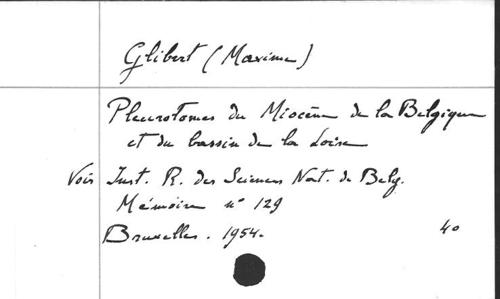 Glibert (Maxime)
Pleurotomes du Miocène de la Belgique
et du bassin de la Loire
Voir Inst. R. des Sciences Nat. de Belg.
Mémoire n° 129
Bruxelles. 1954. 40